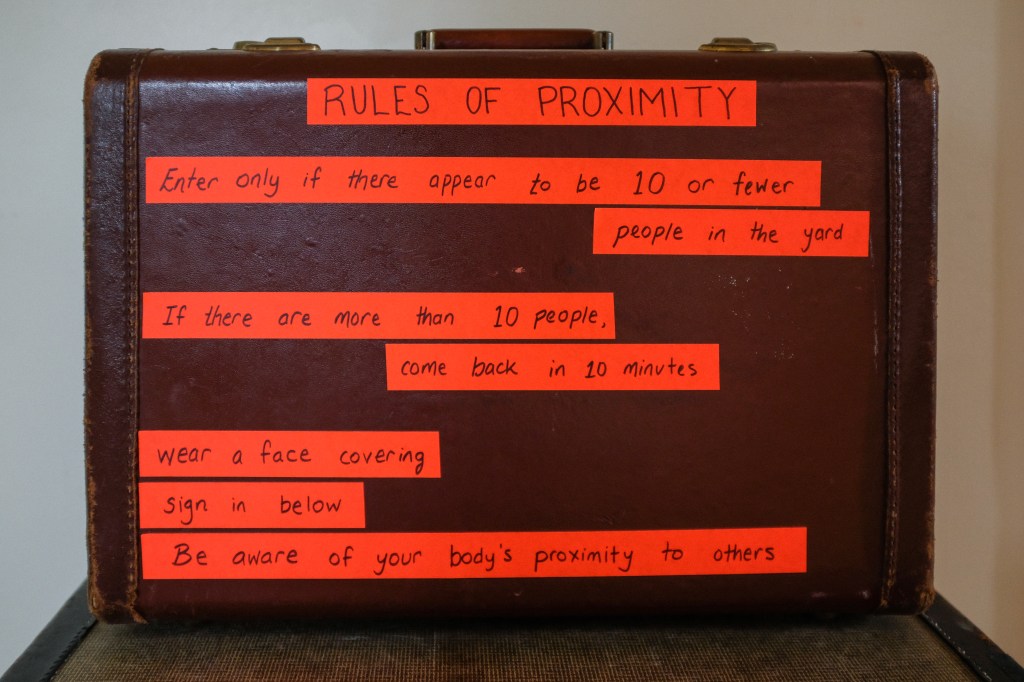 RULES OF PROXIMITY
Enter only if there appear to be 10 or fewer
people in the yard
If there are more than 10 people,
come back in 10 minutes
wear a face covering
sign in below
Be aware of your body's proximity to others